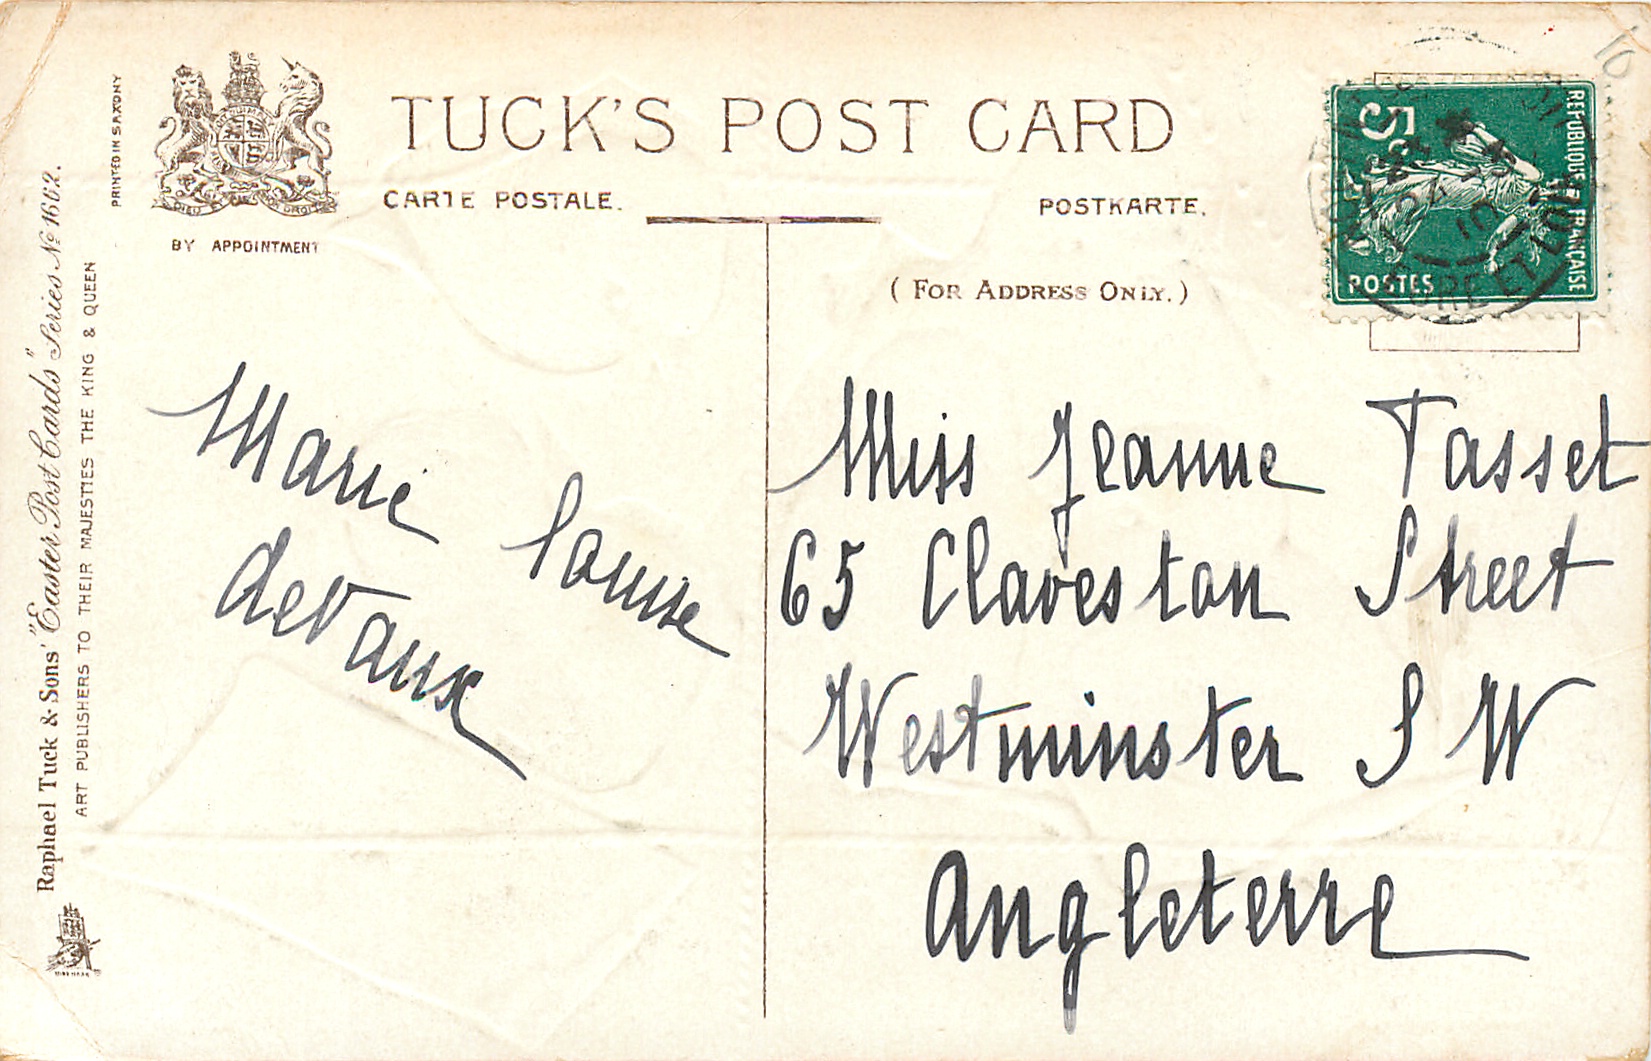 TUCK'S POST CARD
CARTE POSTALE.
POSTKARTE.
(FOR ADDRESS ONLY.)
BY APPOINTMENT
PRINTED IN SAXONY
Raphael Tuck & Sons' "Easter Post Cards" Series No 1602.
ART PUBLISHERS TO THEIR MAJESTIES THE KING & QUEEN
REPUBLIQUE FRANÇAISE
5c
POSTES
Marie Louise
deVaux
Miss Jeanne Tasset
65 Claveston Street
Westminster S W
Angleterre
10